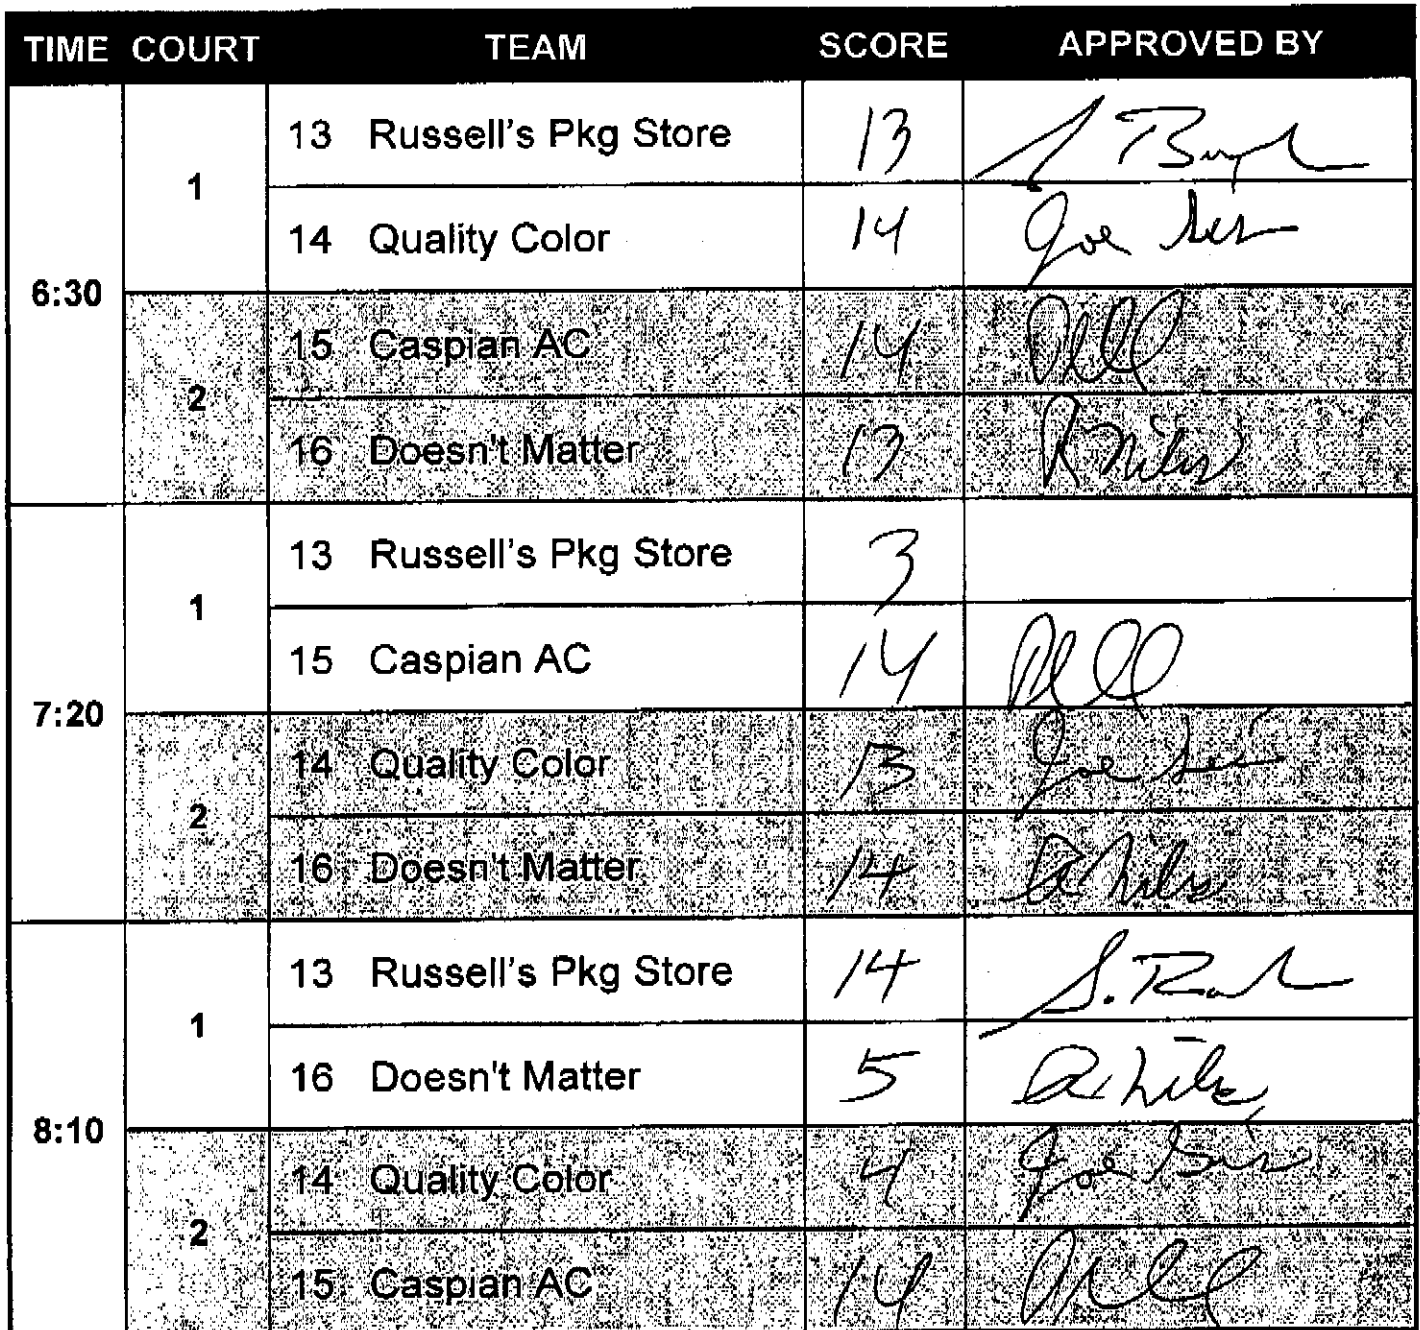 TIME COURT TEAM SCORE APPROVED BY
6:30
1
13 Russell's Pkg Store 13
14 Quality Color 14 Joe
2
15 Caspian AC 14
16 Doesn't Matter 13
7:20
1
13 Russell's Pkg Store 3
15 Caspian AC 14
2
14 Quality Color 13 Joe
16 Doesn't Matter 14
8:10
1
13 Russell's Pkg Store 14 S.
16 Doesn't Matter 5
2
14 Quality Color 4 Joe
15 Caspian AC 14